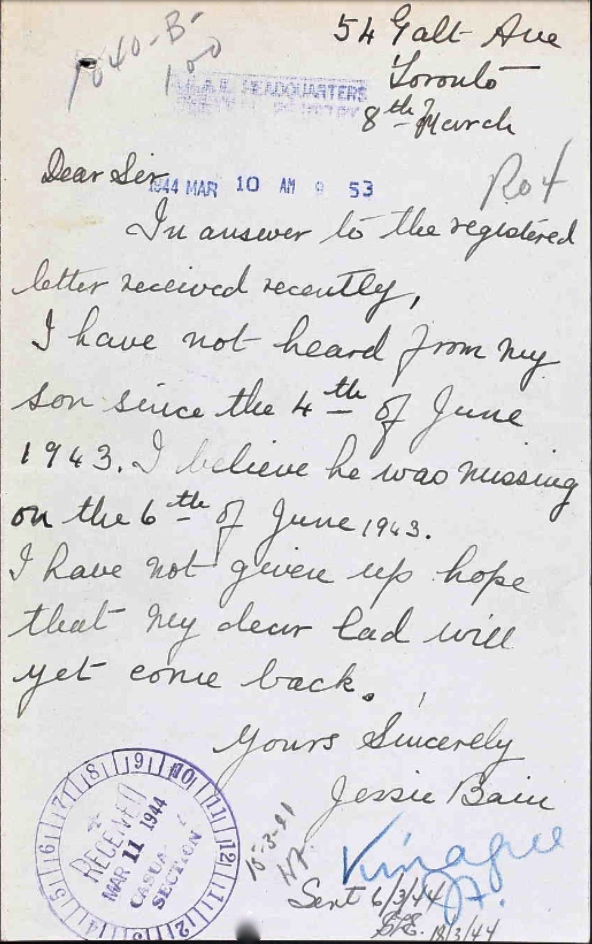 1040-B-
100
54 Galt Ave
Toronto
8th March
HEADQUARTERS
Dear Sir
1944 MAR 10 AM 9 53
In answer to the registered
letter received recently,
I have not heard from my
son since the 4th of June
1943. I believe he was missing
on the 6th of June 1943.
I have not given up hope
that my dear lad will
yet come back.
Yours Sincerely
Jessie Bain
RECEIVED
MAR 11 1944
CASUALTY
SECTION
7 8 9 10 11 12 1 2 3 4 5 6
Sent 6/3/44
18/3/44